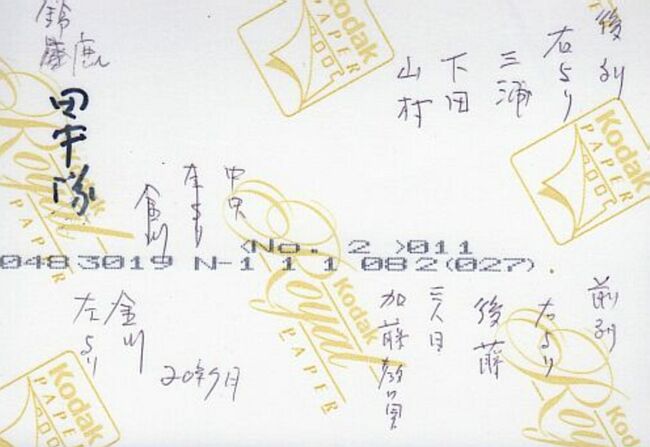 後列
右より
三浦
下田
山村
鈴鹿
田中隊
中央
金川
<No. 2 >011
0483019 N-1 1 1 082(027).
前列
右より
後藤
三人目
加藤
金川
左より
20年9月
Kodak
PAPER
Royal
PAPER
Kodak
PAPER
Royal
PAPER
Kodak
Royal
Kodak
PAPER